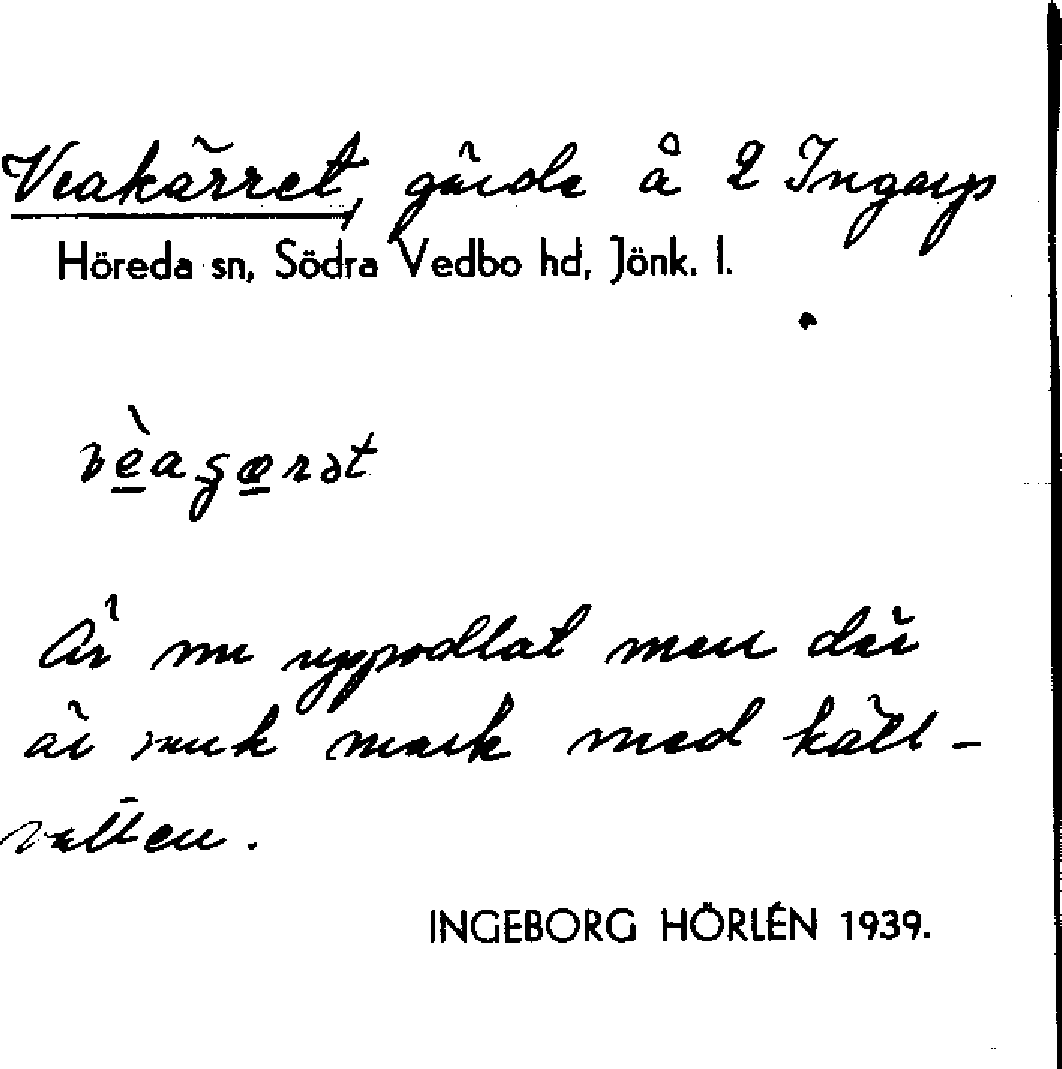 Veakärret, gärde å 2 Ingarp
Höreda sn, Södra Vedbo hd, Jönk. l.
vèaꞔærət
Är nu uppodlat men där
är sank mark med käll-
vatten.
INGEBORG HÖRLÉN 1939.